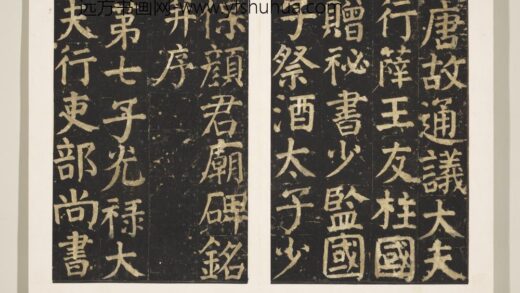 远方书画网-www.yfshuhua.com
唐故通議大夫
行薛王友柱國
贈祕書少監國
子祭酒太子少
保顔君廟碑銘
并序
第七子光祿大
夫行吏部尚書